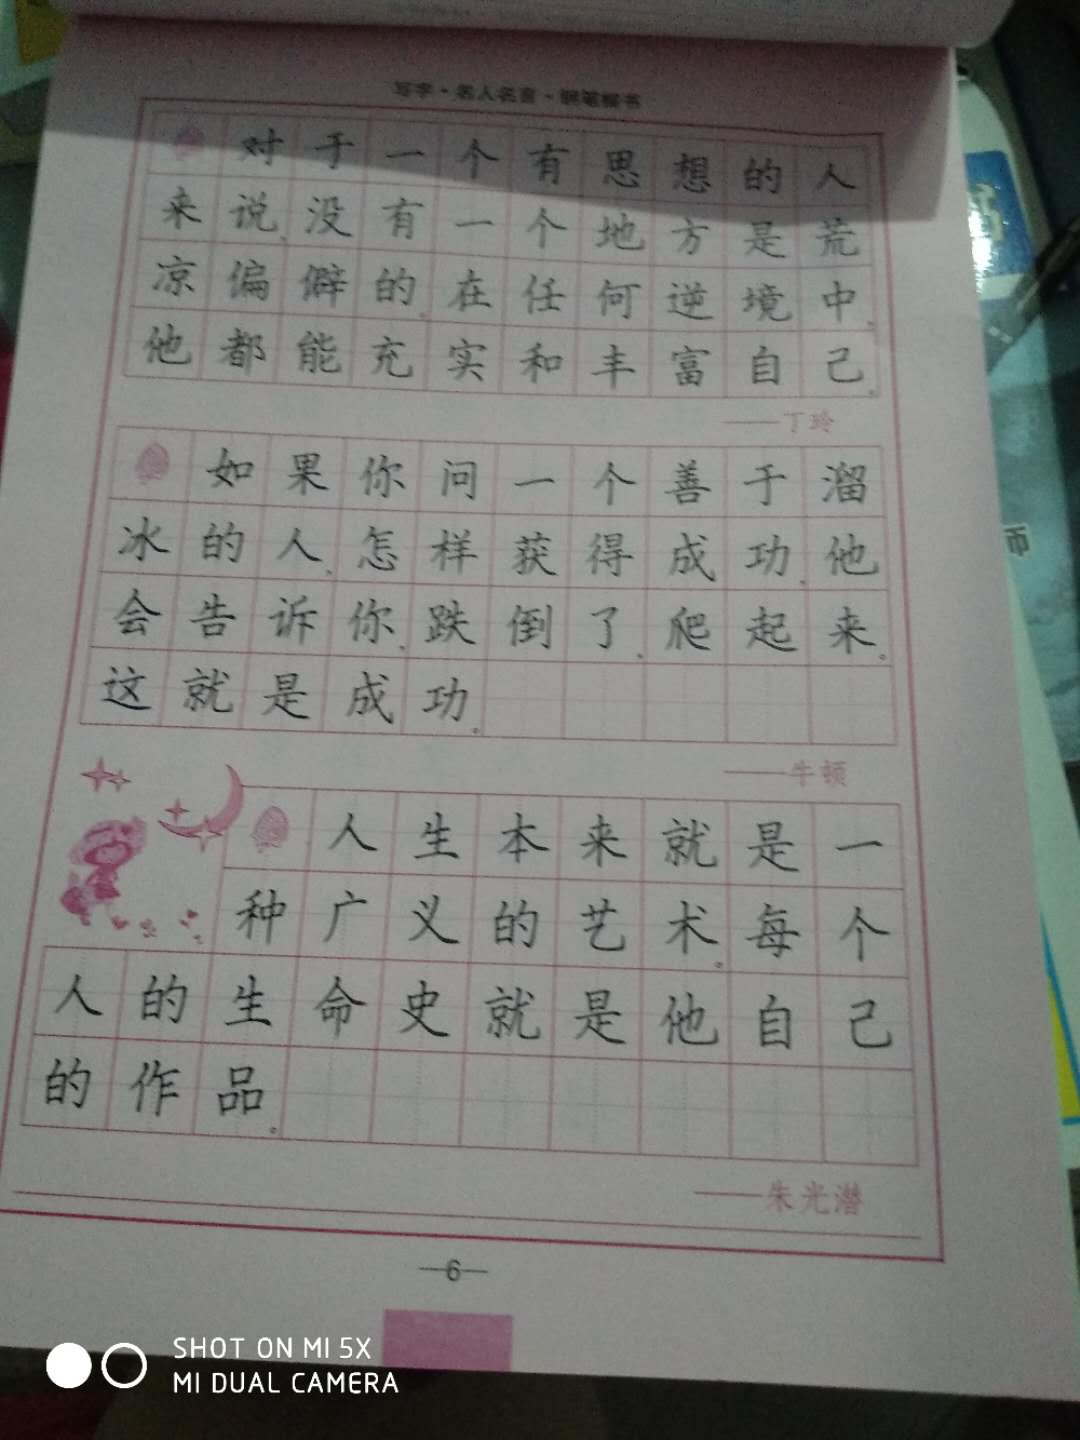 写字·名人名言·钢笔楷书
对于一个有思想的人
来说,没有一个地方是荒
凉偏僻的。在任何逆境中,
他都能充实和丰富自己。
——丁玲
如果你问一个善于溜
冰的人,怎样获得成功,他
会告诉你,跌倒了,爬起来。
这就是成功。
——牛顿
人生本来就是一
种广义的艺术。每个
人的生命史就是他自己
的作品。
——朱光潜
—6—
师
SHOT ON MI 5X
MI DUAL CAMERA